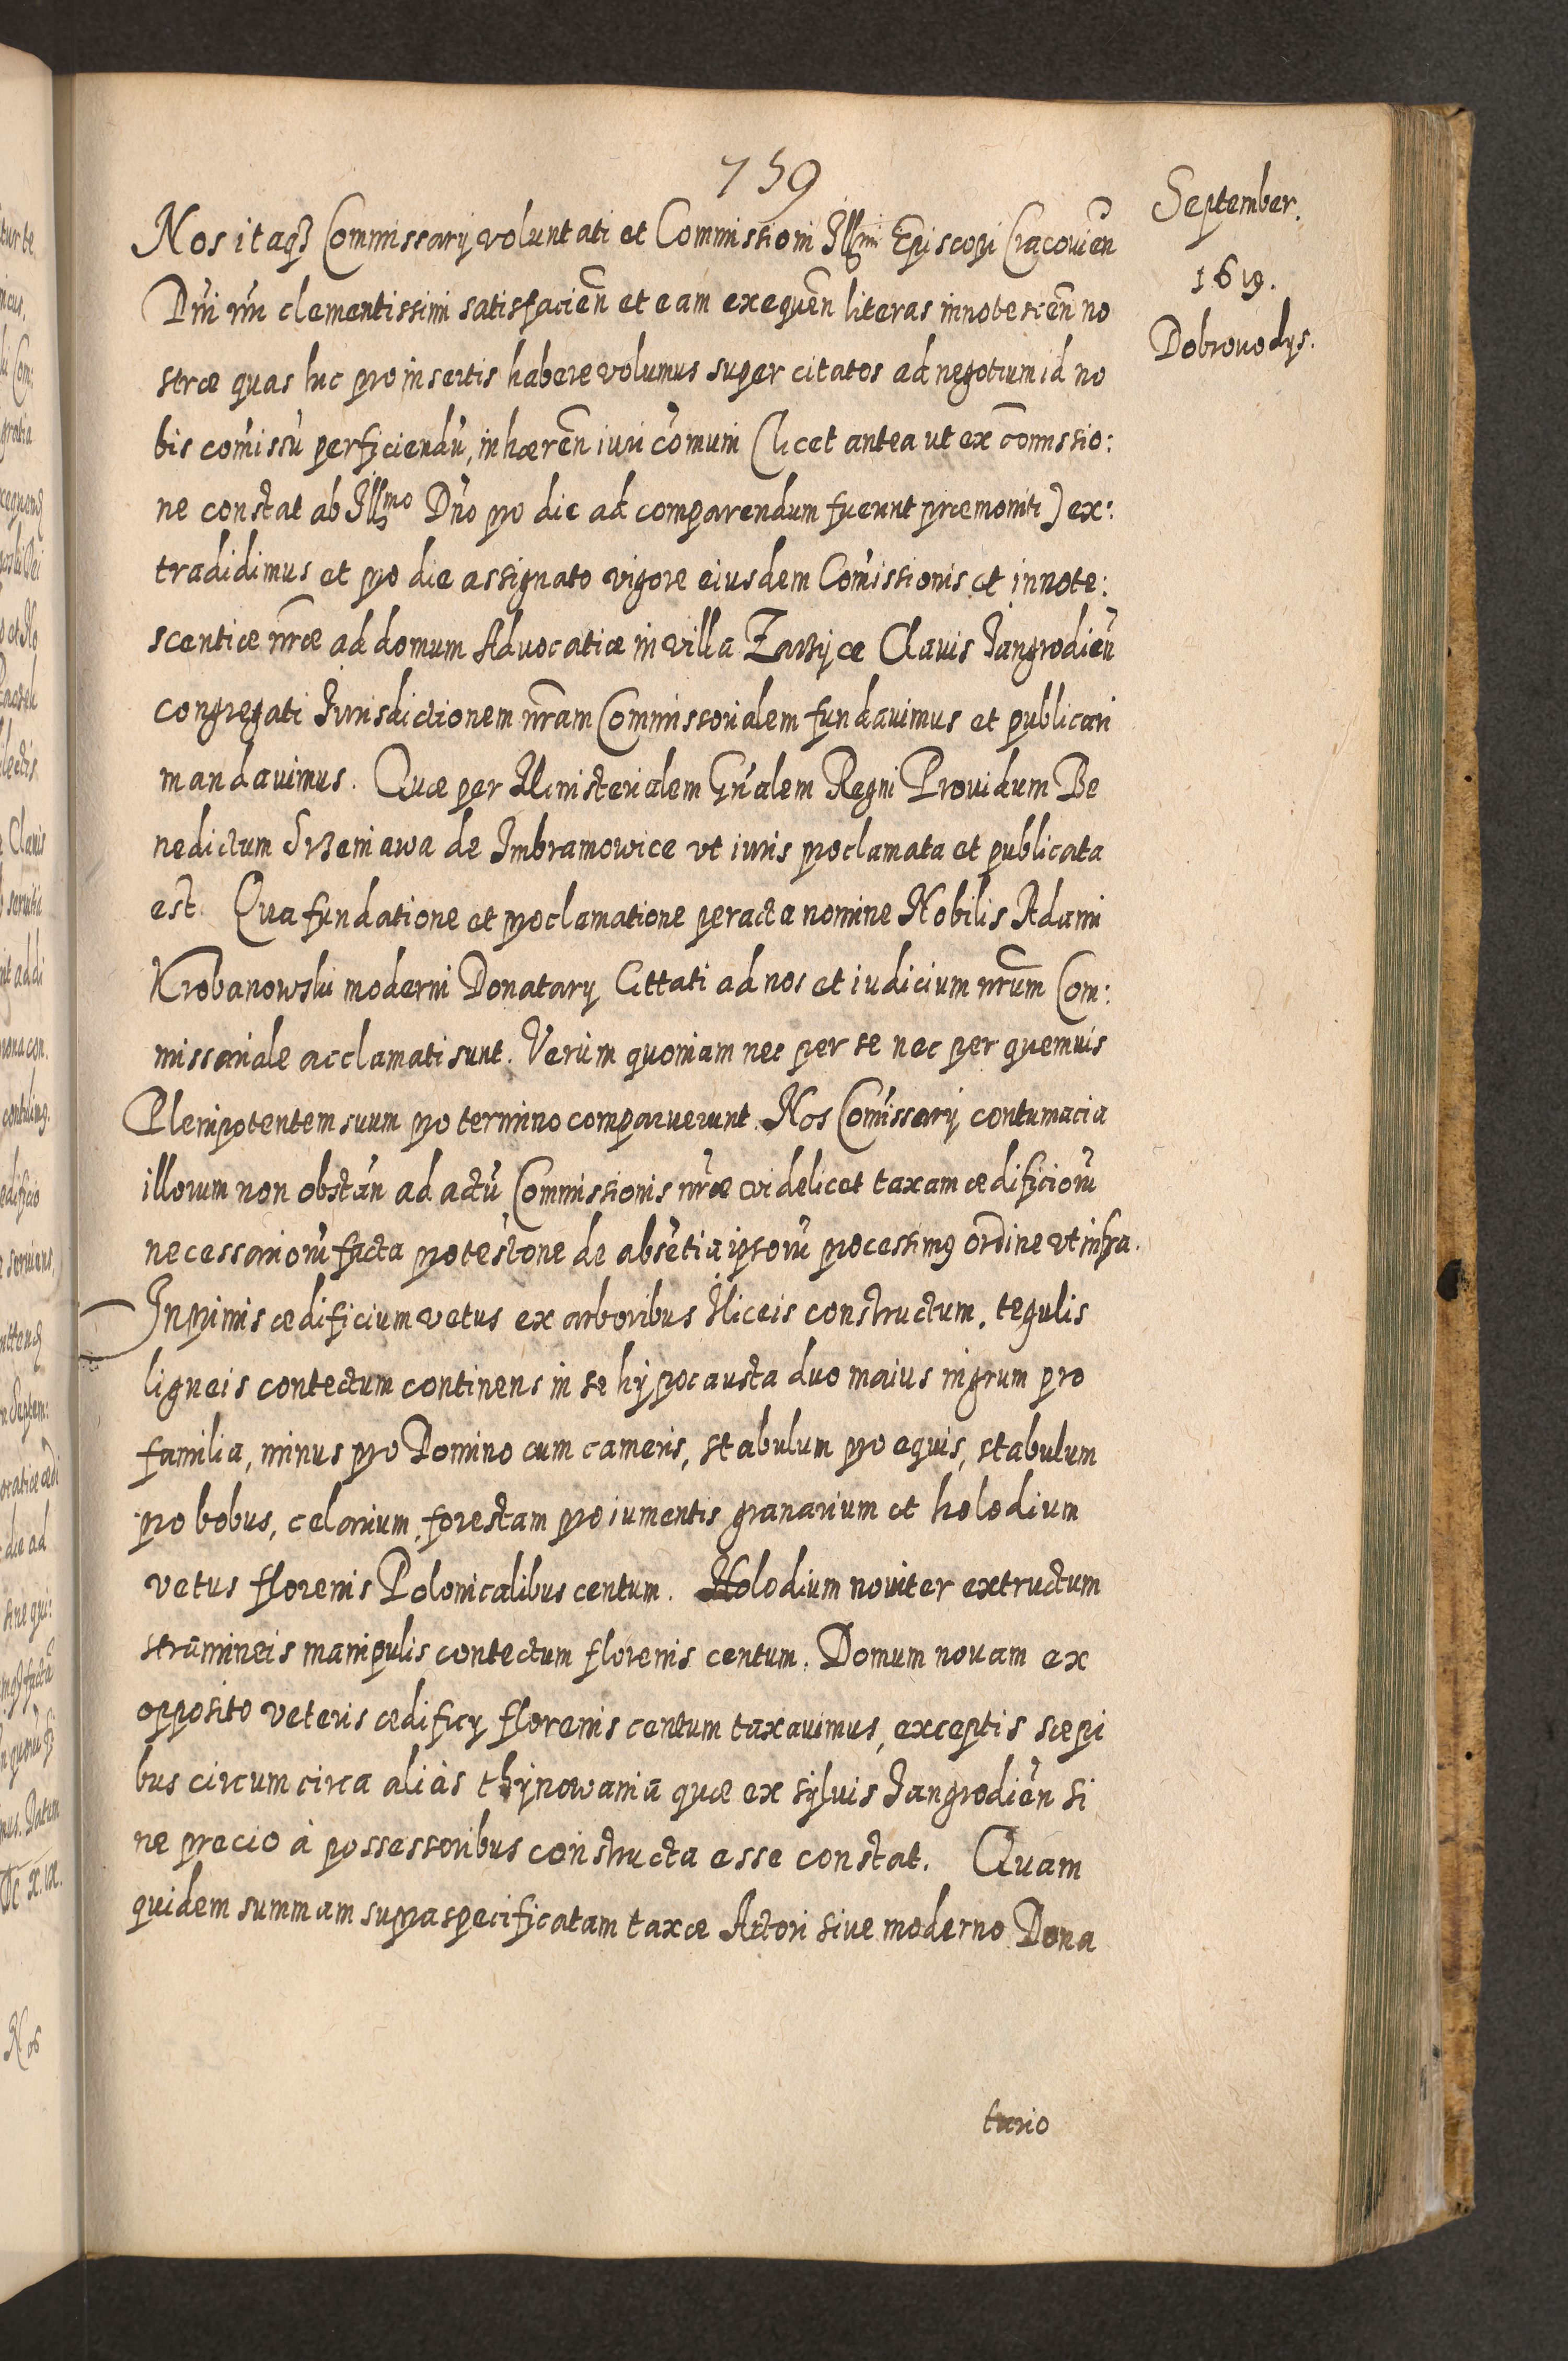 759
September.
1619.
Dobrouodys.
Nos itaqꝫ Commissarij voluntati et Commissioni Illmi Episcopi Cracouien̄
Dn̄i nr̄i clementissimi satisfacien̄ et eam exequen̄ literas innotescen̄ no
stræ quas hic pro insertis habere volumus super citatos ad negotium id no
bis com̄issū perficiendū, inhæren̄ iuri com̄uni (licet antea ut ex com̄issio:
ne constat ab Illmo Dn̄o pro die ad comparendum fuerunt præmoniti) ex:
tradidimus et pro die assignato vigore eiusdem Com̄issionis et innote:
scentiæ nr̄æ ad domum Aduocatiæ in villa Zarzyce Clauis Jangrodien̄
congregati Jurisdictionem nr̄am Commissorialem fundauimus et publicari
mandauimus. Quæ per Ministerialem Gn̄alem Regni Prouidum Be
nedictum Srzeniawa de Imbramowice vt iuris proclamata et publicata
est. Qua fundatione et proclamatione peracta nomine Nobilis Adami
Krobanowski moderni Donatarij Cittati ad nos et iudicium nr̄um Com:
missoriale acclamati sunt. Verùm quoniam nec per se nec per quemuis
Plenipotentem suum pro termino comparuerunt. Nos Com̄issarij contumacia
illorum non obstan̄ ad actū Commissionis nr̄æ videlicet taxam ædificiorū
necessariorū facta protestone de absētia ipsorū processimꝰ ordine vt infra.
Inprimis ædificium vetus ex arboribus Iliceis constructum, tegulis
ligneis contectum continens in se hypocausta duo maius nigrum pro
familia, minus pro Domino cum cameris, stabulum pro equis, stabulum
pro bobus, celarium, forestam pro iumentis granarium et holodium
vetus florenis Polonicalibus centum. Holodium nouiter extructum
stramineis manipulis contectum florenis centum. Domum nouam ex
opposito veteris ædificij florenis centum taxauimus, exceptis sæpi
bus circumcirca aliàs thynowania quæ ex syluis Jangrodien̄ si
ne precio à possessoribus constructa esse constat. Quam
quidem summam supraspecificatam taxæ Actori siue moderno Dona
tario